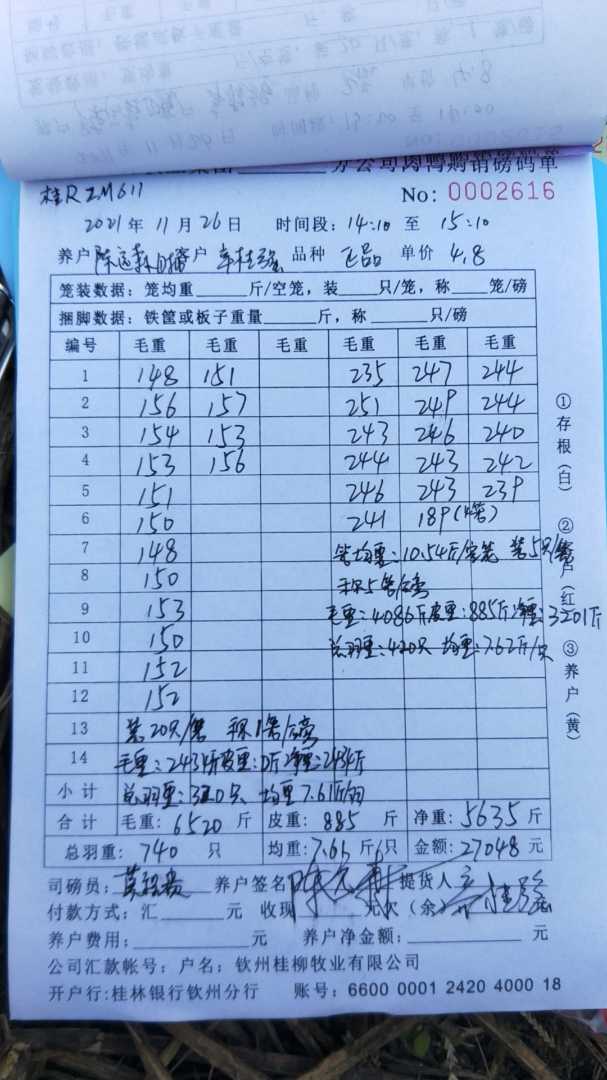 分公司肉鸭购销磅码单
桂RZM611
No: 0002616
2021年 11月 26日 时间段: 14:10 至 15:10
养户 客户 品种 正品 单价 4.8
笼装数据: 笼均重 斤/空笼, 装 只/笼, 称 笼/磅
捆脚数据: 铁筐或板子重量 斤, 称 只/磅
编号 毛重 毛重 毛重 毛重 毛重 毛重
1 148 151 235 247 244
2 156 157 251 249 244
3 154 153 243 246 240
4 153 156 244 243 242
5 151 246 243 239
6 150 241 189(4笼)
7 148 笼均重:10.54斤/空笼 装5只/笼
8 150 称5笼/磅
9 153 毛重:4086斤 皮重:885斤 净重:3201斤
10 150 总羽重:420只 均重:7.62斤/只
11 152
12 152
13 装20只/笼 称1笼/磅
14 毛重:2434斤 皮重:0斤 净重:2434斤
小计 总羽重:320只 均重7.61斤/羽
合计 毛重: 6520 斤 皮重: 885 斤 净重: 5635 斤
总羽重: 740 只 均重: 7.61 斤/只 金额: 27048 元
司磅员: 养户签名 提货人
付款方式: 汇 元 收现 元 欠(余) 元
养户费用: 元 养户净金额: 元
公司汇款帐号: 户名: 钦州桂柳牧业有限公司
开户行:桂林银行钦州分行 账号: 6600 0001 2420 4000 18
①存根(白) ②客户(红) ③养户(黄)